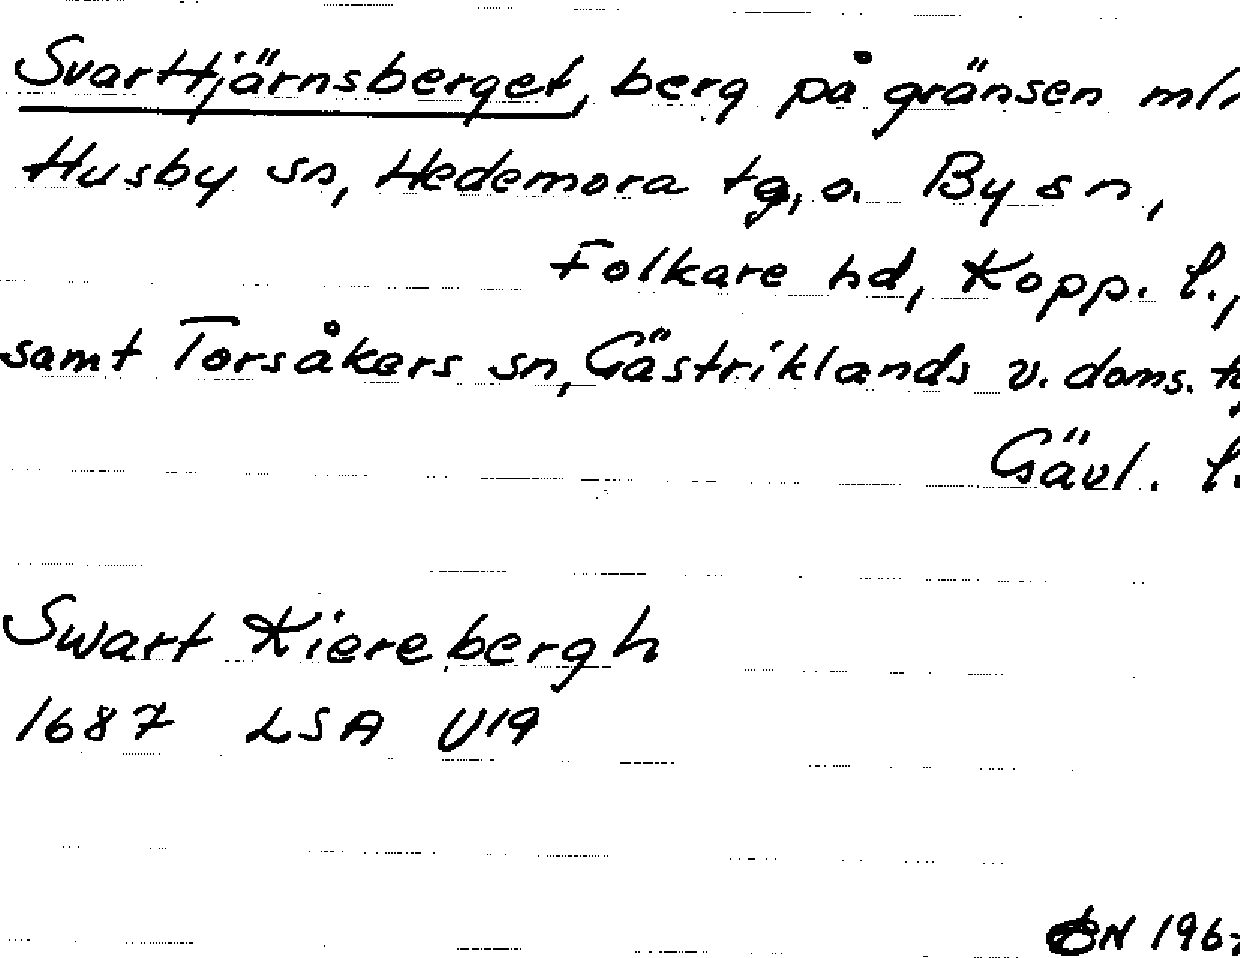 Svarttjärnsberget, berg på gränsen m/n
Husby sn, Hedemora tg, o. By sn,
Folkare hd, Kopp. l.,
samt Torsåkers sn, Gästriklands v. doms. tg
Gävl. l.
Swart Kierebergh
1687 LSA U19